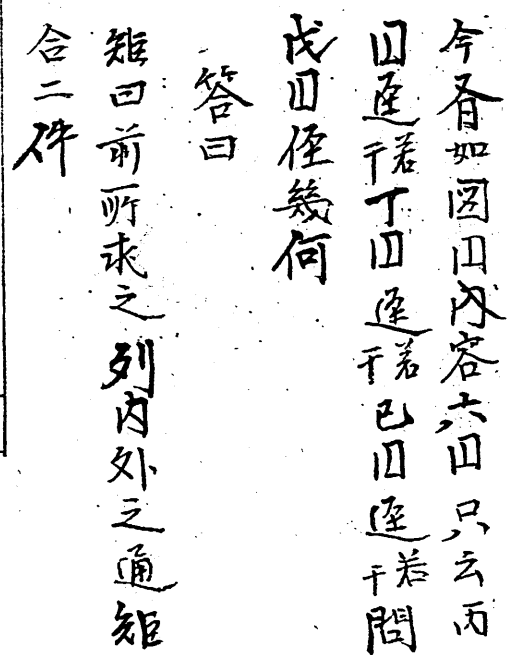 今有如図円内容六円只云丙
円径若干丁円径若干己円径若干問
戊円径幾何
答曰
矩曰前所求之列内外之通矩
合二件